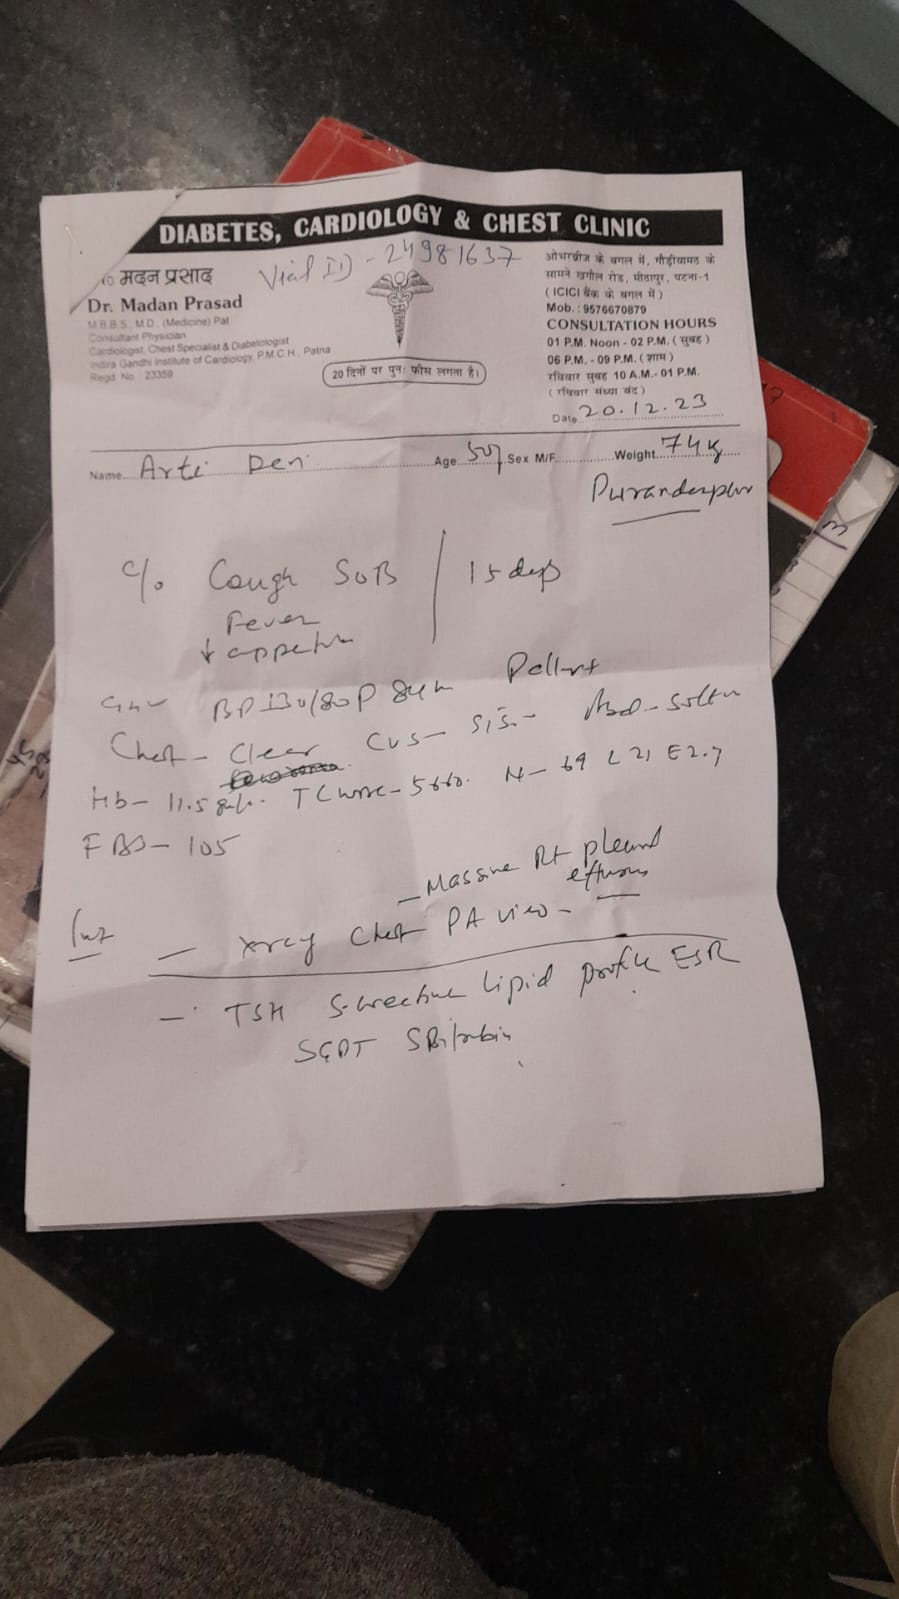 DIABETES, CARDIOLOGY & CHEST CLINIC
मदन प्रसाद
Dr. Madan Prasad
M.B.B.S., M.D. (Medicine) Pat
Consultant Physician
Cardiologist, Chest Specialist & Diabetologist
Indira Gandhi Institute of Cardiology, P.M.C.H., Patna
Regd. No. : 23359
Vial ID - 24981637
20 दिनों पर पुनः फीस लगता है।
ओभरब्रीज के बगल में, गौड़ीयामठ के
सामने खगौल रोड, मीठापुर, पटना-1
(ICICI बैंक के बगल में)
Mob. : 9576670879
CONSULTATION HOURS
01 P.M. Noon - 02 P.M. (सुबह)
06 P.M. - 09 P.M. (शाम)
रविवार सुबह 10 A.M.- 01 P.M.
(रविवार संध्या बंद)
Date 20.12.23
Name Arti Age Sex M/F Weight 74 kg
Puranderpur
c/o Cough SOB 15 days
Fever
↓ appetite
BP 130/80 P 84/m Pallor +
Chest - Clear CVS - Abd - Soft
Hb - 11.5 TC N - 69 L 21 E 2.7
FBS - 105
- Massive Rt pleural effusion
Inv - Xray Chest PA view -
- TSH S. creatinine Lipid profile ESR
SGPT S Bilirubin